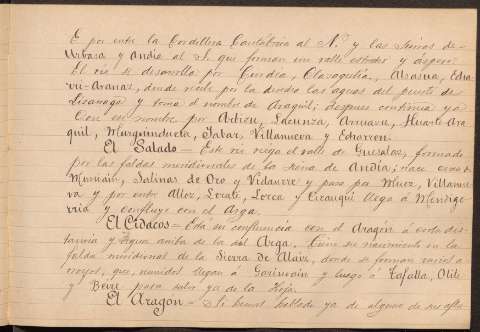 E por entre la Cordillera Cantábrica al N. y las Sierras de
Urbasa y Andia al S. que forman un valle estrecho y áspero.
El rio se desarrolla por Ciordia, Olazagutia, Alsasua, Echa-
rri-Aranaz, donde recibe por la derecha las aguas del puerto de
Lizarraga y toma el nombre de Araquil; despues continúa ya
con ese nombre por Lacunza, Arruazu, Huarte Ara-
quil, Murguindueta, Satar, Villanueva y Echarren.
El Salado = Este rio riega el valle de Guesalaz, formado
por las faldas meridionales de la sierra de Andia; nace cerca de
Muniain, Salinas de Oro y Vidaurre y pasa por Muez, Villanue-
va y por entre Alloz, Lorca y Cirauqui llega á Mendigo-
rria y confluye con el Arga.
El Cidacos = Esta su confluencia con el Aragón á corta dis-
tancia y agua arriba de la del Arga. Tiene su nacimiento en la
falda meridional de la Sierra de Alaiz, donde se forman varios a-
rroyos, que, reunidos llegan á Garinoain y luego á Tafalla, Olite
y Beire para salir ya de la Hoja.
El Aragón = Si hemos hablado ya de alguno de sus afl